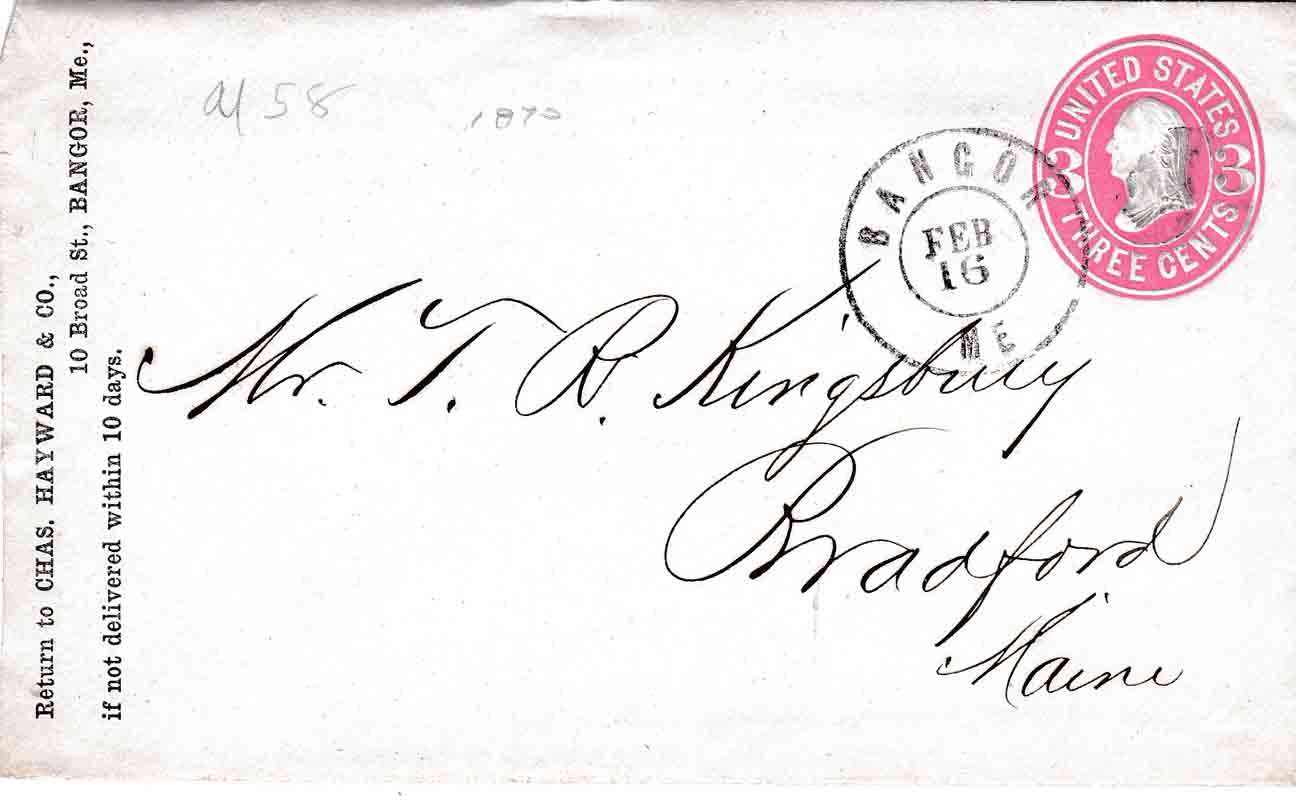 Return to CHAS. HAYWARD & CO.,
10 Broad St., BANGOR, Me.,
if not delivered within 10 days.
58
1870
UNITED STATES
3 3
THREE CENTS
BANGOR
FEB
16
ME
Mr. T. R. Kingsbury
Bradford
Maine